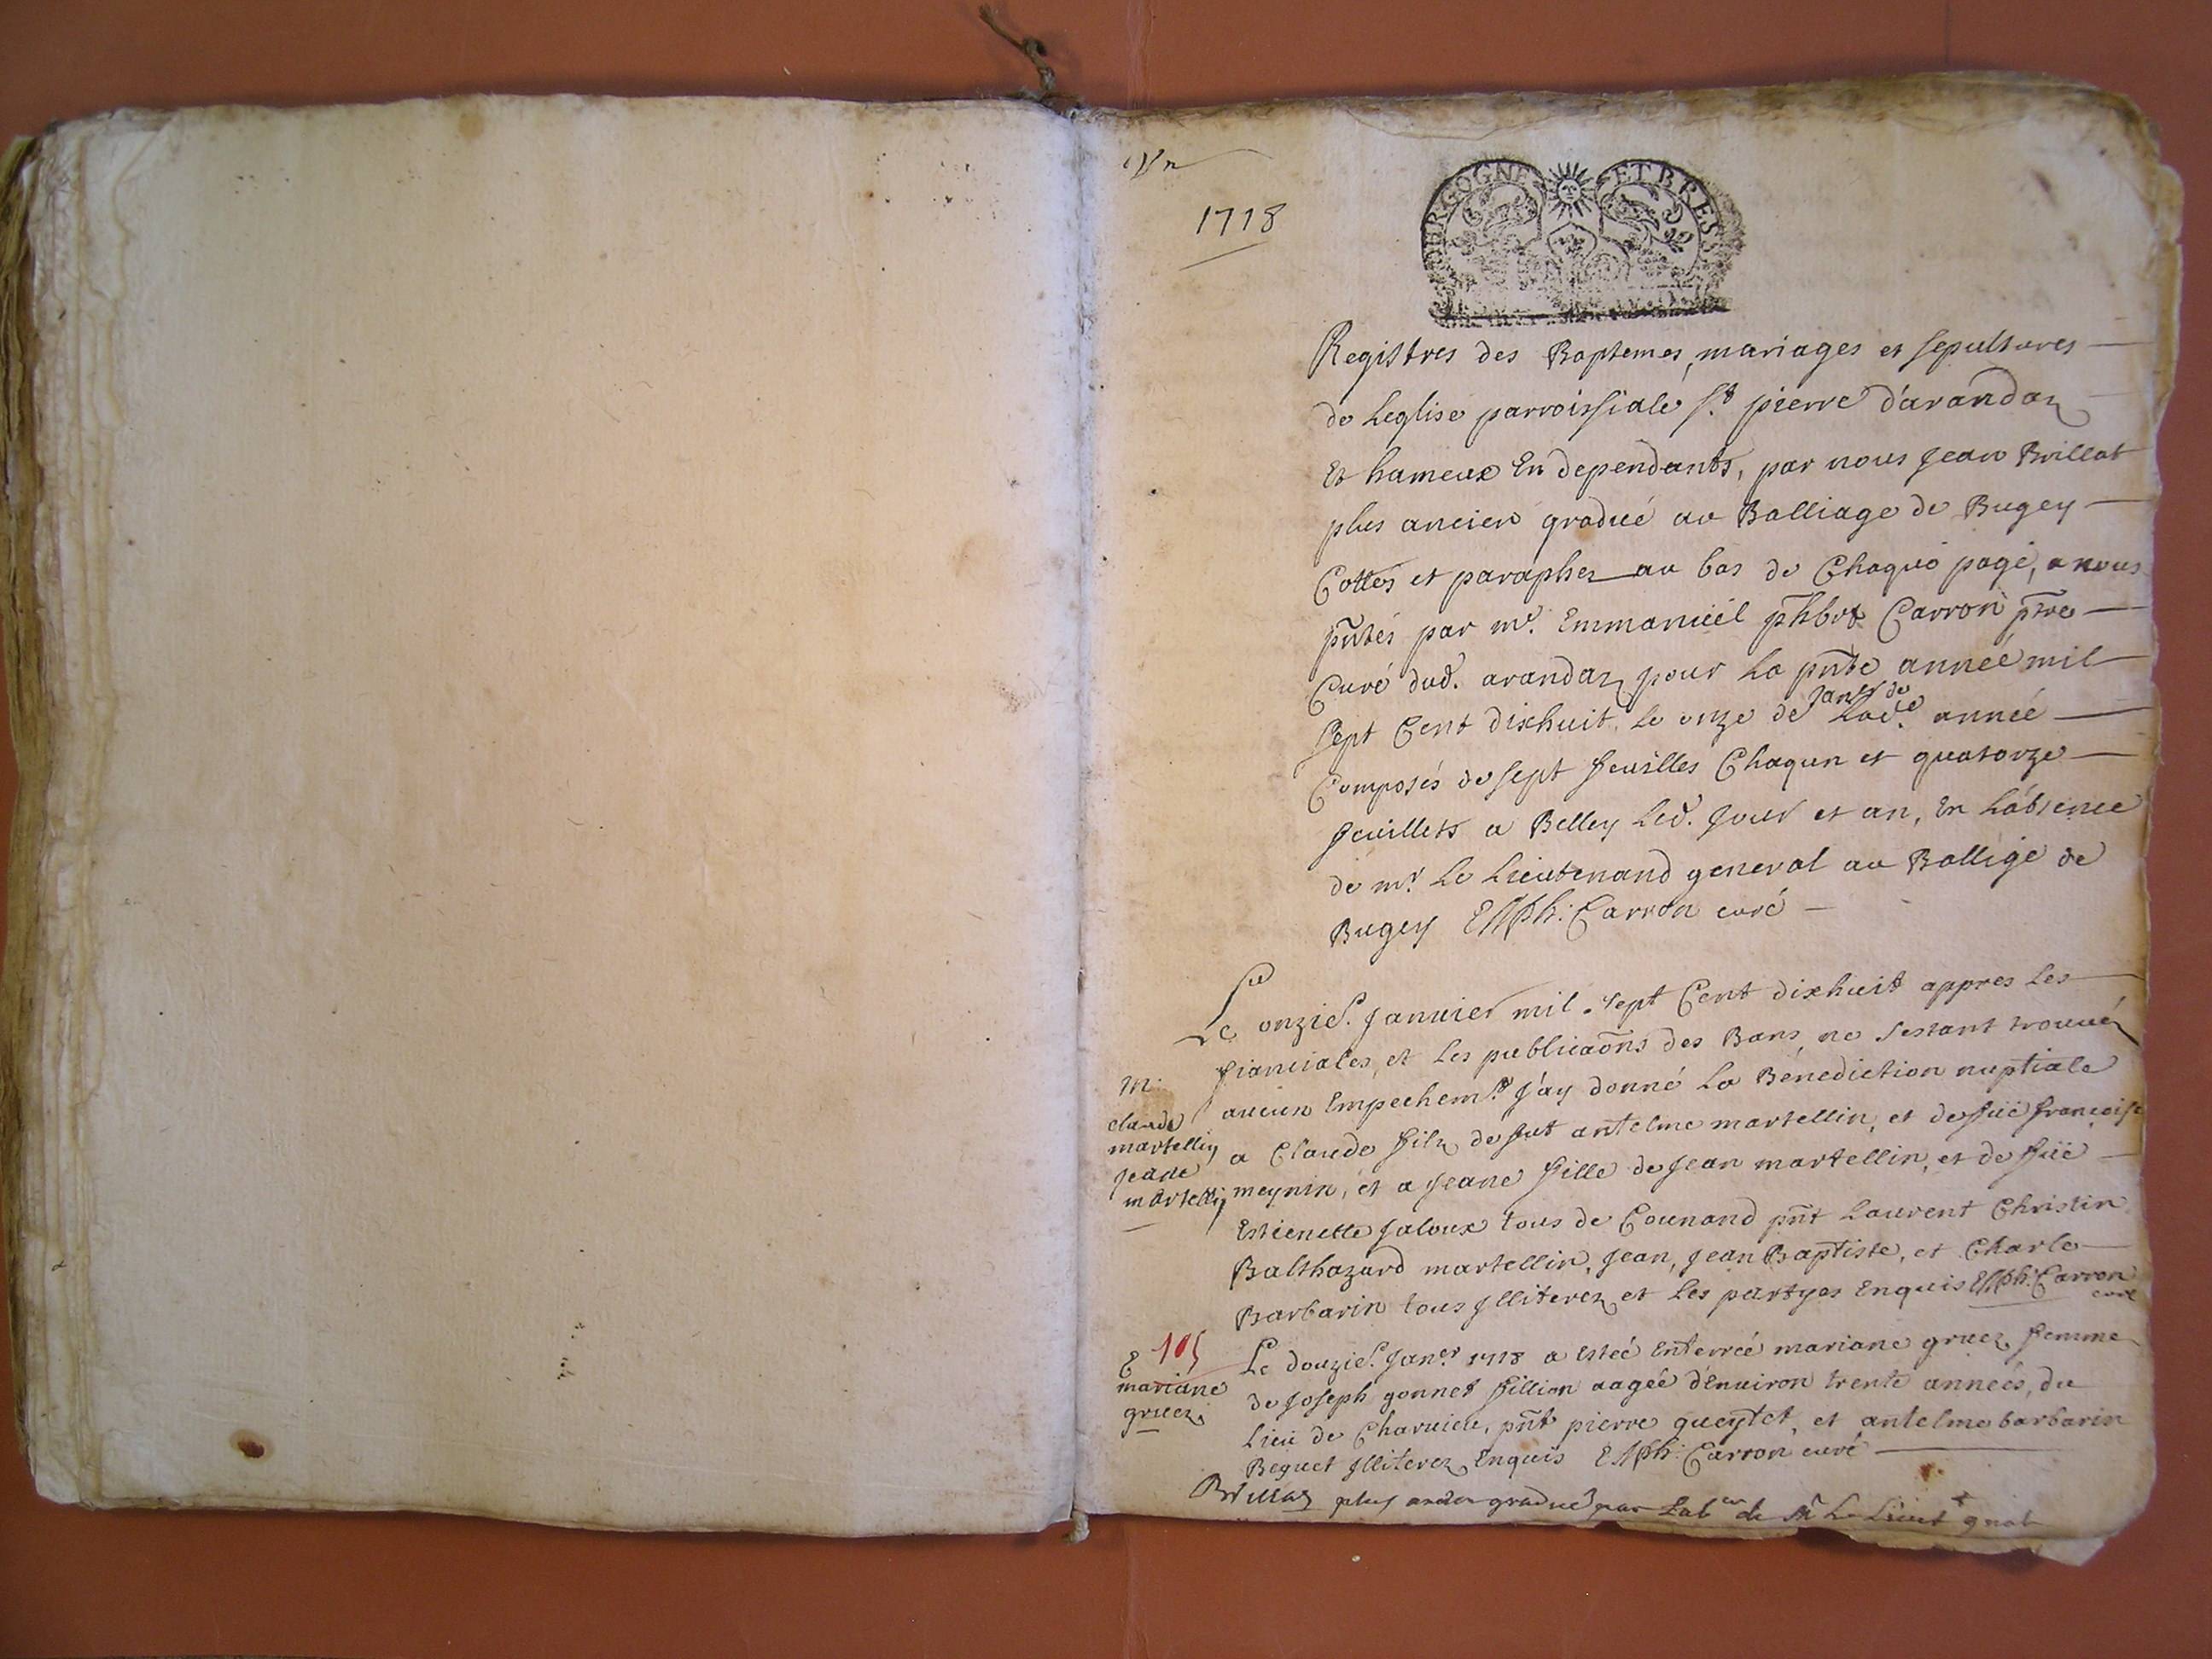 1718
BOURGOGNE ET BRESSE
Registres des Baptemes, mariages et sepultures
de Leglise parroissiale St. pierre d'arandaz
Et hameux En dependants, par nous Jean Brillat
plus ancien gradué au Balliage de Bugey
Cottés et paraphez au bas de Chaque page, a nous
pñtés par me. Emmanüel phbrt Carron ptre
Curé dud. arandaz pour La pñte année mil
sept Cent dixhuit, Le onze de Janer de Lade. année
Composés de sept feuilles Chaqun et quatorze
feuillets a Belley Led. Jour et an, En L'absence
de mr. Le Lieutenand general au Ballige de
Bugey EMph: Carron curé
Le onzie. Januier mil sept Cent dixhuit appres Les
fianciales, et Les publicaõns des Bans, ne sestant trouué
M:
aucun Empechemt. J'ay donné La Benediction nuptiale
claude
martellin
Jeane
martellin
a Claude filz de fut antelme martellin, et de füe françoise
meynin, et a Jeane fille de Jean martellin, et de füe
Estienette Jaloux tous de Counand pñt Laurent Christin
Balthazard martellin, Jean, Jean Baptiste, et Charle
Barbarin tous Jlliterez et Les partyes Enquis EMph: Carron
curé
105
E
mariane
gruez
Le douzie. Janer 1718 a Estée Enterrée mariane gruez femme
de Joseph gonnet fillion aagée d'Enuiron trente années, du
Lieu de Charuieu, pñt pierre queytet, et antelme barbarin
Beguet Jlliterez Enquis EMph: Carron curé
Brillat plus ancien gradué par Labce de Mr Le Lieut gnal